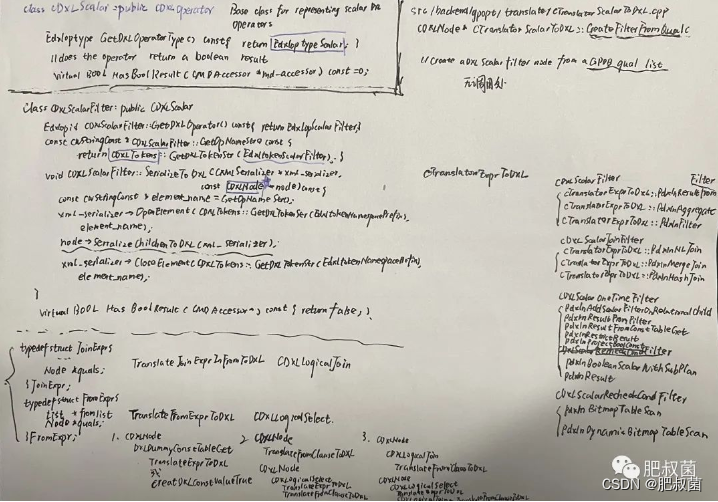 class CDXLScalar : public CDXLOperator Base class for representing scalar DXL operators
Edxloptype GetDXLOperatorType() const { return EdxloptypeScalar; }
// does the operator return a boolean result
virtual BOOL HasBoolResult (CMDAccessor *md-accessor) const =0;
src/backend/gpopt/translate/CTranslatorScalarToDXL.cpp
CDXLNode * CTranslatorScalarToDXL::CreateFilterFromQual(
// create a DXL scalar filter node from a GPDB qual list
Class CDXLScalarFilter: public CDXLScalar
Edxlopid CDXLScalarFilter::GetDXLOperator() const { return EdxlopScalarFilter;}
const CWStringConst * CDXLScalarFilter::GetOpNameStr() const {
return CDXLTokens::GetDXLTokenStr(EdxltokenScalarFilter); }
void CDXLScalarFilter::SerializeToDXL(CXMLSerializer *xml_serializer,
const CDXLNode *node) const {
const CWStringConst * element_name = GetOpNameStr();
xml_serializer->OpenElement(CDXLTokens::GetDXLTokenStr(EdxltokenNamespacePrefix),
element_name);
node->SerializeChildrenToDXL(xml_serializer);
xml_serializer->CloseElement(CDXLTokens::GetDXLTokenStr(EdxltokenNamespacePrefix),
element_name);
}
virtual BOOL HasBoolResult (CMDAccessor*) const { return false; }
CTranslatorExprToDXL
CDXLScalarFilter Filter
CTranslatorExprToDXL::
CTranslatorExprToDXL::PdxlnAggregate
CTranslatorExprToDXL::PdxlnFilter
CDXLScalarJoinFilter
CTranslatorExprToDXL::PdxlnNLJoin
CTranslatorExprToDXL::PdxlnMergeJoin
CTranslatorExprToDXL::PdxlnHashJoin
CDXLScalarOneTimeFilter
PdxlnAddScalarFilterOnRelationalChild
PdxlnResultFromFilter
PdxlnResultFromConstTableGet
PdxlnRestrictResult
PdxlnProjectBoolConst
Filter
PdxlnBooleanScalarWithSubPlan
PdxlnResult
CDXLScalarRecheckCondFilter
PdxlnBitmapTableScan
PdxlnDynamicBitmapTableScan
typedef struct JoinExpr{
Node *quals; TranslateJoinExprInFromToDXL CDXLLogicalJoin
} JoinExpr;
typedef struct FromExpr{
List *fromlist
Node *quals; TranslateFromExprToDXL CDXLLogicalSelect.
} FromExpr;
1. CDXLNode
DXLDummyConstTableGet
TranslateExprToDXL
CreatDXLConstValueTrue
2 CDXLNode
TranslateFromClauseToDXL
CDXLNode
CDXLLogicalSelect
TranslateExprToDXL
TranslateFromClauseToDXL
3. CDXLNode
CDXLLogicalJoin
TranslateFromClauseToDXL
CDXLNode
CDXLLogicalSelect
TranslateExprToDXL
肥叔菌
CSDN @肥叔菌